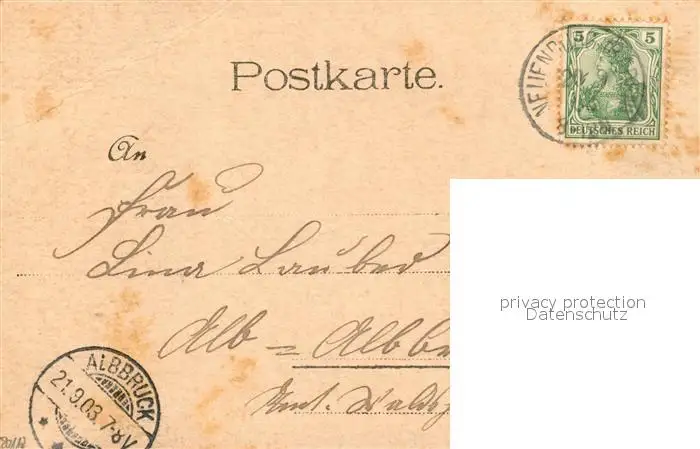 5 5
DEUTSCHES REICH
Postkarte.
An
Frau
Lina Lauber
Alb = Albb
Amt. Walds
privacy protection
Datenschutz
ALBBRUCK
21.9.03. 7-8V